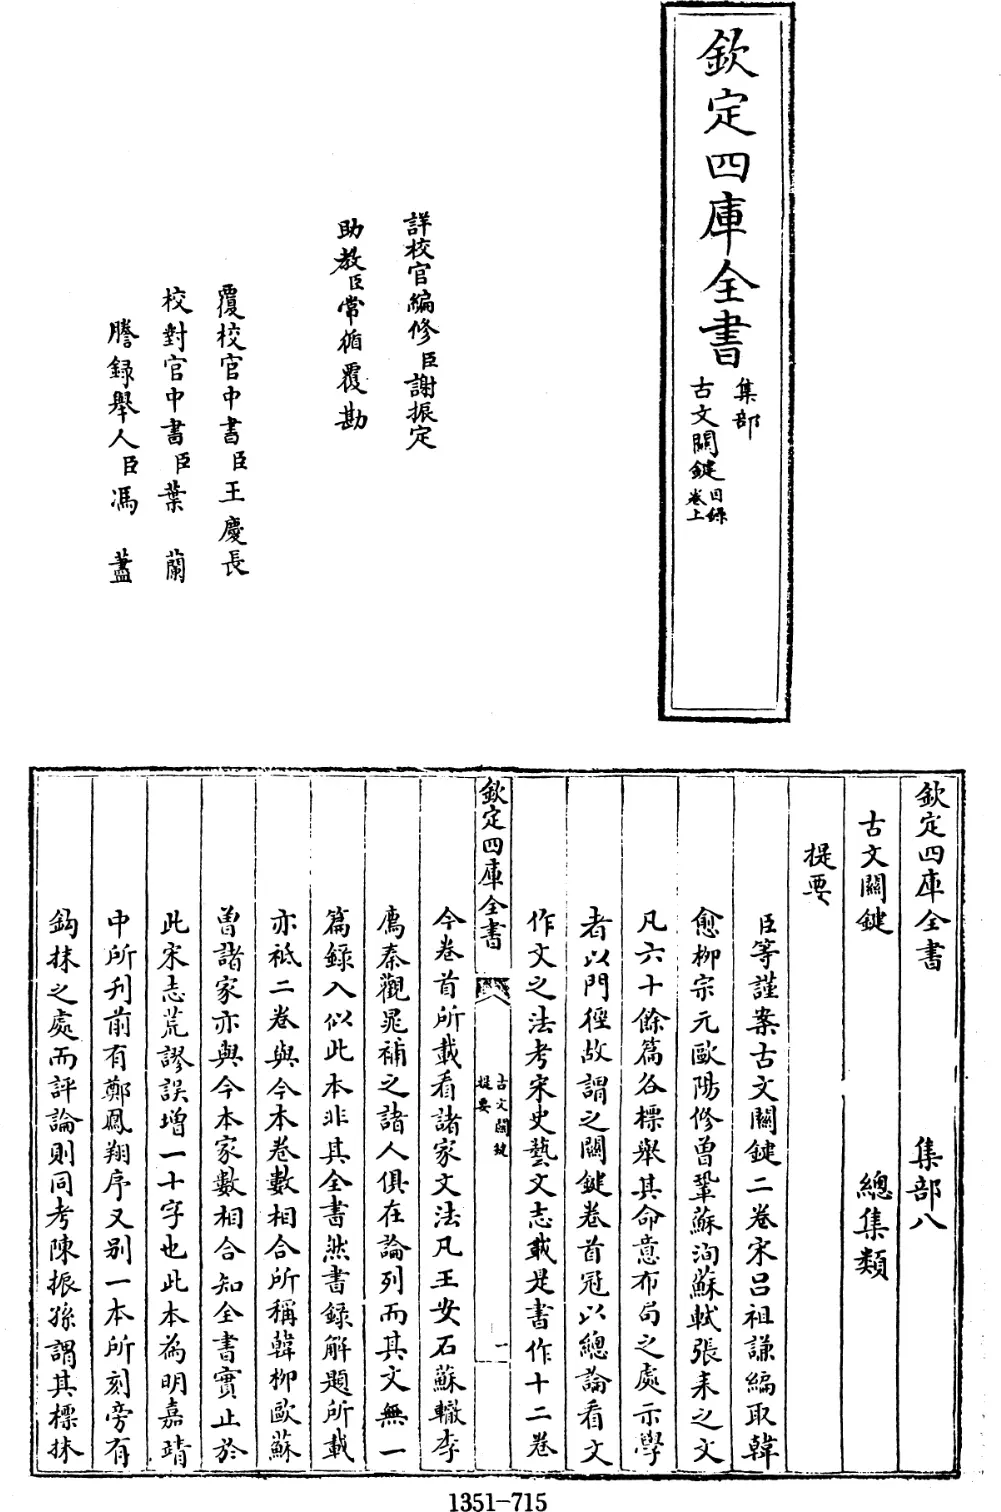 欽定四庫全書
集部
古文關鍵
目錄
卷上
詳校官編修臣謝振定
助教臣常循覆勘
覆校官中書臣王慶長
校對官中書臣葉蘭
謄錄舉人臣馮藎
欽定四庫全書 集部八
古文關鍵 總集類
提要
臣等謹案古文關鍵二卷宋呂祖謙編取韓
愈柳宗元歐陽修曾鞏蘇洵蘇軾張耒之文
凡六十餘篇各標舉其命意布局之處示學
者以門徑故謂之關鍵卷首冠以總論看文
作文之法考宋史藝文志載是書作十二卷
欽定四庫全書
古文關鍵
提要
一
今卷首所載看諸家文法凡王安石蘇轍李
廌秦觀晁補之諸人俱在論列而其文無一
篇錄入似此本非其全書然書錄解題所載
亦祗二卷與今本卷數相合所稱韓柳歐蘇
曽諸家亦與今本家數相合知全書實止於
此宋志荒謬誤增一十字也此本為明嘉靖
中所刋前有鄭鳳翔序又别一本所刻旁有
鈎抹之處而評論則同考陳振孫謂其標抹
1351-715